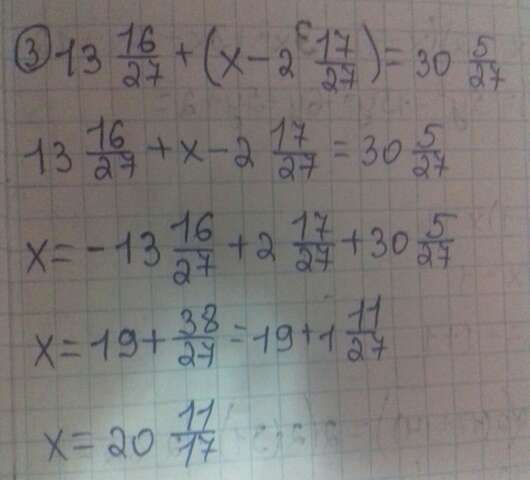 ③ 13 16/27 + (x - 2 17/27) = 30 5/27
13 16/27 + x - 2 17/27 = 30 5/27
x = -13 16/27 + 2 17/27 + 30 5/27
x = 19 + 38/27 = 19 + 1 11/27
x = 20 11/17